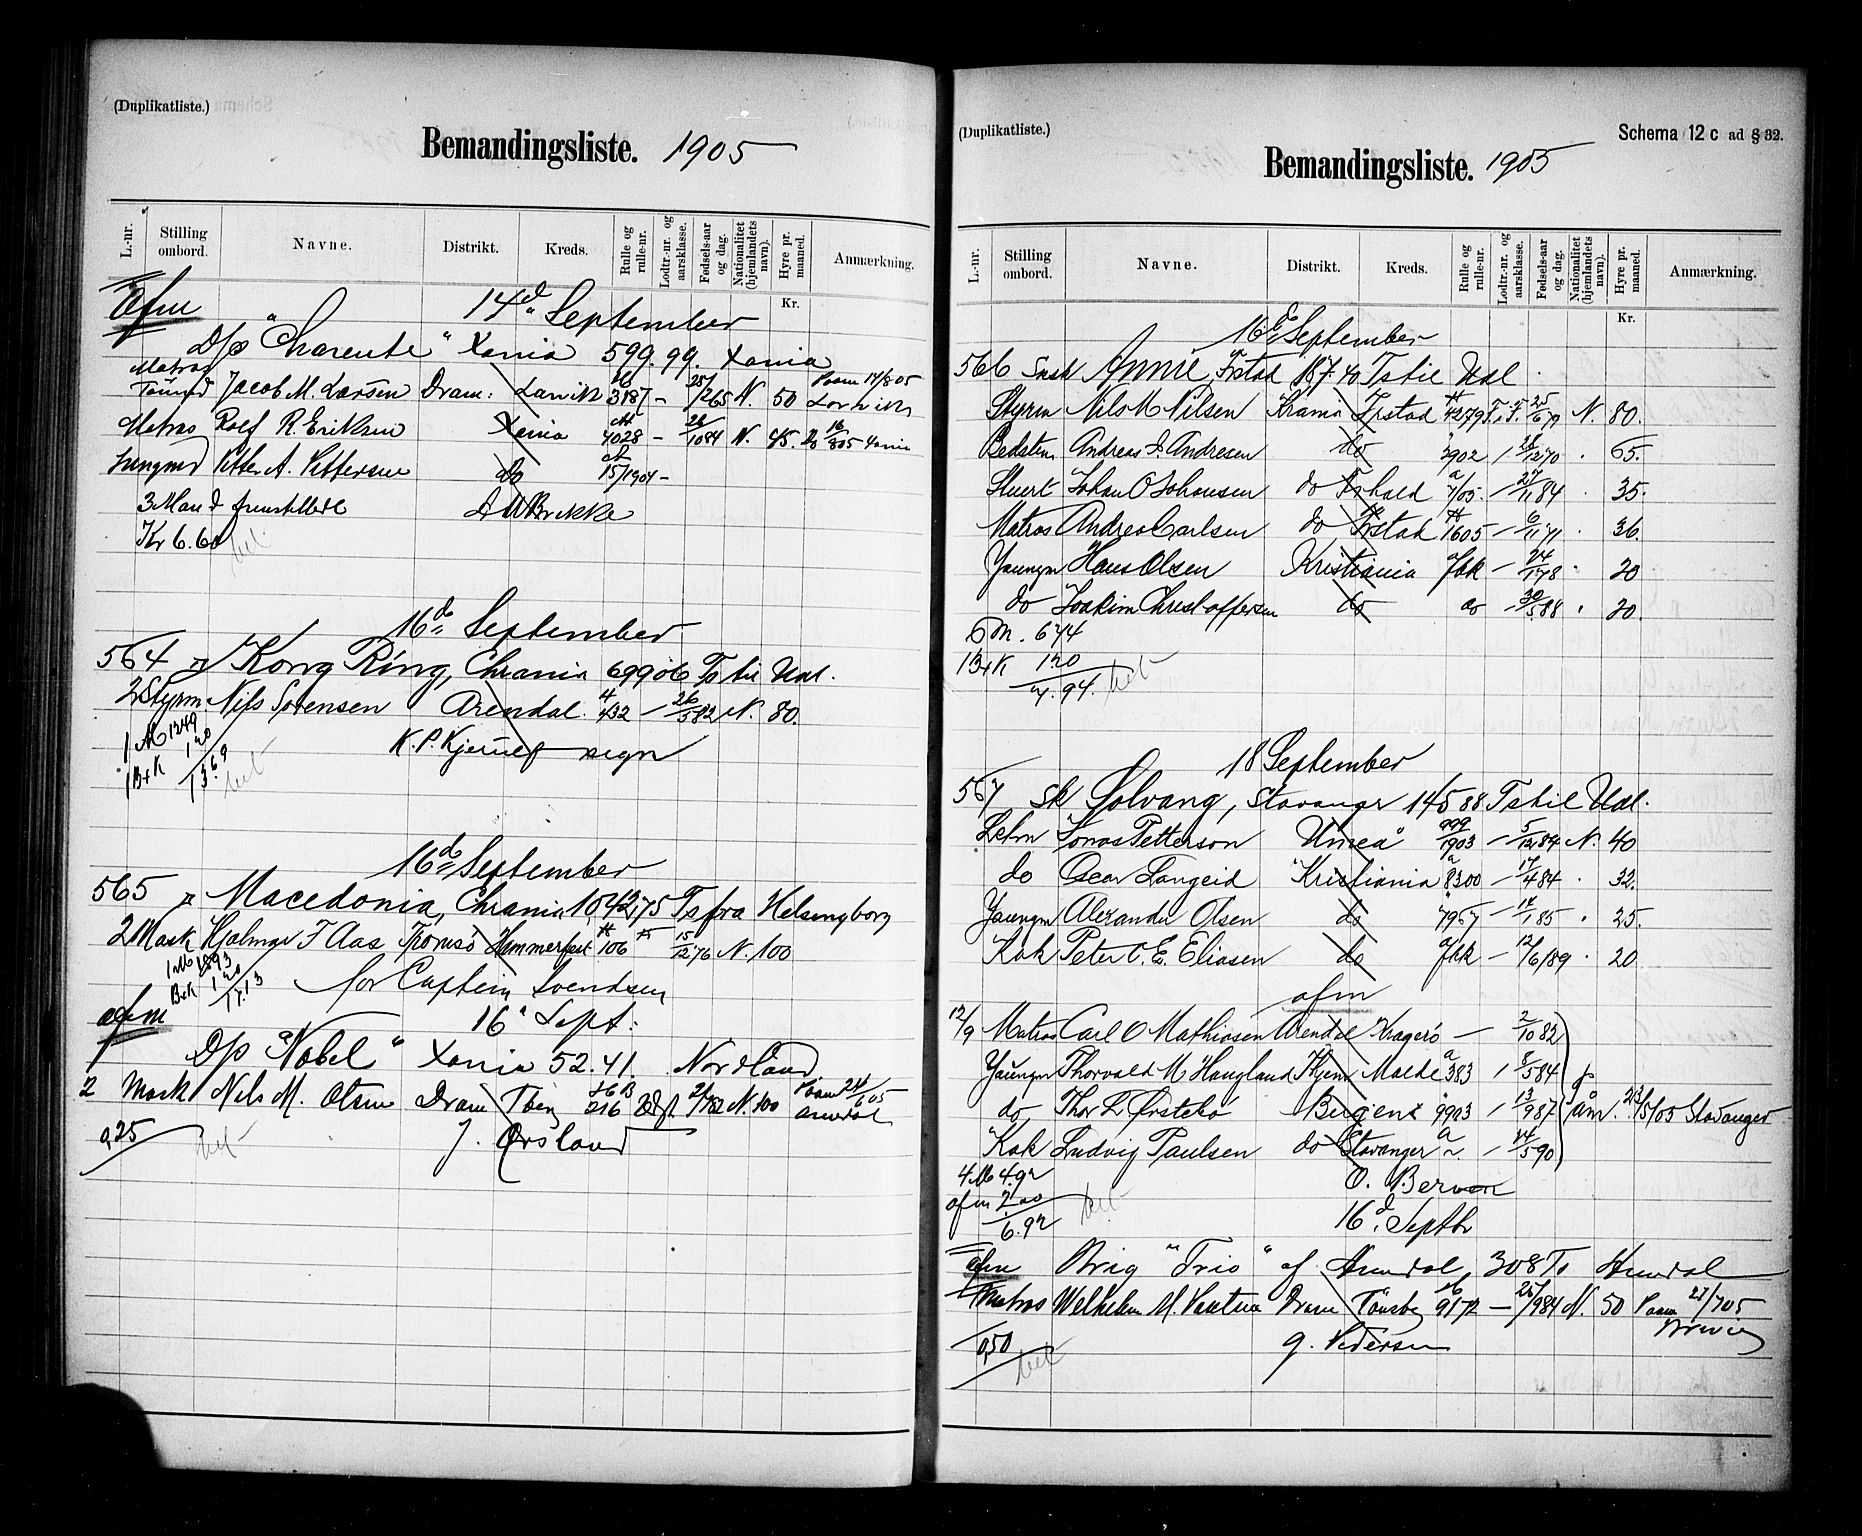 (Duplikatliste.)
Bemandingsliste. 1905
L.-nr. Stilling ombord. Navne. Distrikt. Kreds. Rulle og rulle-nr. Lodtr.-nr. og aarsklasse. Fødsels-aar og dag. Nationalitet (hjemlandets navn). Hyre pr. maaned. Anmærkning.
Kr.
Afm 14d September
D/s "Charente" Xania 599.99. Xania
Matros
Tømmd Jacob M. Larsen Dram: Larvik 3187 - 25/2 65 N. 50 Paam 17/8 05 Larvik
Matros Rolf R. Eriksen Xania 4028 - 26/10 84 N. 45. do 16/8 05 Xania
Jungmd Petter A. Pettersen do 15/1904 -
3 Mand fremstillede A M Brekke
Kr 6.60 bet
16de September
564 Kong Ring, Chrania 699 06 Ts til Udl.
2 Styrm. Nils Sørensen Arendal. 432 - 26/5 82 N. 80
1 M 12 49 K. P. Kjerulf sign
1 B+K 1 20
13.69 bet
16de September
565 Macedonia, Chrania 1042,75 Ts fra Helsingborg
2 Mask Hjalmar F Aas Tromsø Hammerfest 106 15/12 76 N. 100
1 M 15 93
B+K 1 20 for Captein Svendsen
17.13
afm 16 Sept:
D/s "Nobel" Xania 52.41. Nordland
2 Mask Nils M. Olsen Dram Tbg 216 N. 100 Paam 24/6 05 Arendal
0,25 bet J. Ørsland
(Duplikatliste.)
Schema 12 c ad § 32.
Bemandingsliste. 1905
L.-nr. Stilling ombord. Navne. Distrikt. Kreds. Rulle og rulle-nr. Lodtr.-nr. og aarsklasse. Fødsels-aar og dag. Nationalitet (hjemlandets navn). Hyre pr. maaned. Anmærkning.
Kr.
16de September
566 Annie, Frstad 187.40 Ts til Udl.
Styrm Nils M Nilsen Krania Frstad 4279 25/6 79 N. 80.
Bedstm Andreas Andresen do 2902 28/12 70 . 65.
Stuert Johan O Johansen do Frhald 7/05 - 27/11 84 . 35.
Matros Andrea Carlsen do Frstad 1605 - 6/11 71 . 36.
Youngm Hans Olsen Kristiania Jbk - 24/1 78 . 20
do Joakim Christoffersen do do - 30/5 88 . 20.
6 M. 674
1 B+K 120
7.94. bet
18 September
567 Sk Solvang, Stavanger 145 88 Ts til Udl.
Letm Jonas Petterson Umeå 999/1903 - 5/12 84 N. 40
do Oscar Langeid Kristiania 8300 - 17/4 84 . 32.
Youngm Alexander Olsen do 7967 - 12/1 85 . 25.
Kok Peter C. E. Eliasen do Jbk - 12/6/89 . 20
afm
12/9 Matros Carl O Mathiasen Arendal Kragerø - 2/10 82
Youngm Thorvald M Haugland Molde 383 8/5 84
do Thor L Ørstebø Bergens 9903 13/9 87 påm. 23/5/05 Stavanger
Kok Ludvig Paulsen do Stavanger 14/5 90
4 M 4.92 O. Berven
afm 2.00
6.92 bet 16d Septbr
afm Brig "Trio" af Arendal, 308 Ts Arendal
Matros Welhelm M. Dram Tønsbg 9172 - 25/9 84 N. 50 Paam 27/7 05 Brevig
0,50 bet G. Pedersen